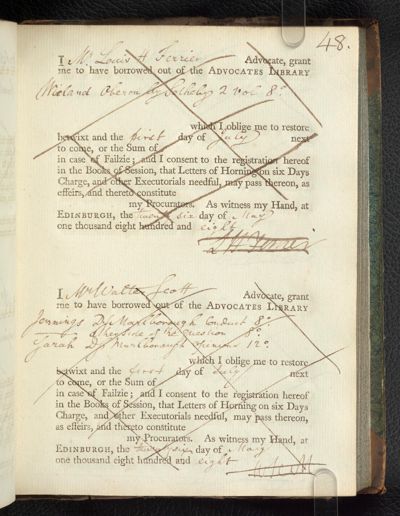 48.
I Mr. Louis H Ferrier Advocate, grant
me to have borrowed out of the ADVOCATES LIBRARY
Wieland Oberon by Sotheby 2 vol 8°
which I oblige me to restore
betwixt and the first day of July next
to come, or the Sum of
in case of Failzie; and I consent to the registration hereof
in the Books of Session, that Letters of Horning on six Days
Charge, and other Executorials needful, may pass thereon, as
effeirs, and thereto constitute
my Procurators. As witness my Hand, at
EDINBURGH, the twenty six day of May
one thousand eight hundred and eight
L H Ferrier
I Mr Walter Scott Advocate, grant
me to have borrowed out of the ADVOCATES LIBRARY
Jennings Ds Marlborough Conduct 8°
other side of the Question 8°
Sarah Ds Marlborough 12°
which I oblige me to restore
betwixt and the first day of July next
to come, or the Sum of
in case of Failzie; and I consent to the registration hereof
in the Books of Session, that Letters of Horning on six Days
Charge, and other Executorials needful, may pass thereon,
as effeirs, and thereto constitute
my Procurators. As witness my Hand, at
EDINBURGH, the twenty six day of May
one thousand eight hundred and eight
W Scott